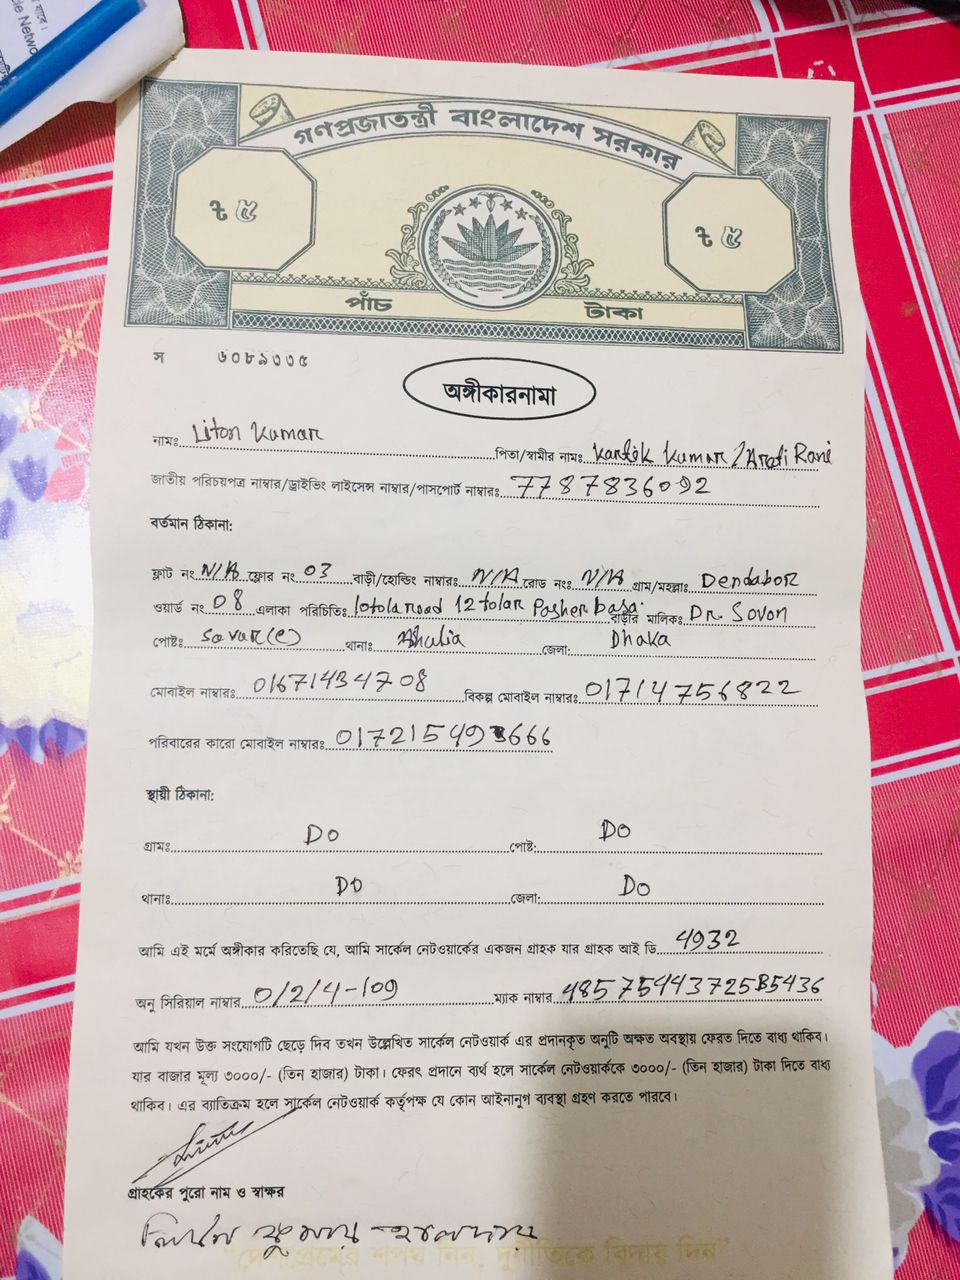 যাবে।
cle Netwo
গণপ্রজাতন্ত্রী বাংলাদেশ সরকার
৳ ৫ ৳ ৫
পাঁচ টাকা
স ৬০৮৯৩৩৫
অঙ্গীকারনামা
নামঃ Liton Kumar পিতা/স্বামীর নামঃ Kartik Kumar / Arati Rani
জাতীয় পরিচয়পত্র নাম্বার/ড্রাইভিং লাইসেন্স নাম্বার/পাসপোর্ট নাম্বারঃ 7787836092
বর্তমান ঠিকানা:
ফ্লাট নং N/A ফ্লোর নং 03 বাড়ী/হোল্ডিং নাম্বারঃ N/A রোড নংঃ N/A গ্রাম/মহল্লাঃ Dendabor
ওয়ার্ড নং 08 এলাকা পরিচিতিঃ 10tola road 12 tolar Pasher basa বাড়ীর মালিকঃ Dr. Sovon
পোষ্টঃ Savar(c) থানাঃ Ashulia জেলা: Dhaka
মোবাইল নাম্বারঃ 01671434708 বিকল্প মোবাইল নাম্বারঃ 01714756822
পরিবারের কারো মোবাইল নাম্বারঃ
স্থায়ী ঠিকানা:
গ্রামঃ DO পোষ্ট: DO
থানাঃ DO জেলা: DO
আমি এই মর্মে অঙ্গীকার করিতেছি যে, আমি সার্কেল নেটওয়ার্কের একজন গ্রাহক যার গ্রাহক আই ডি 4932
অনু সিরিয়াল নাম্বার 0/2/4-109 ম্যাক নাম্বার 485754437255436
আমি যখন উক্ত সংযোগটি ছেড়ে দিব তখন উল্লেখিত সার্কেল নেটওয়ার্ক এর প্রদানকৃত অনুটি অক্ষত অবস্থায় ফেরত দিতে বাধ্য থাকিব।
যার বাজার মূল্য ৩০০০/- (তিন হাজার) টাকা। ফেরৎ প্রদানে ব্যর্থ হলে সার্কেল নেটওয়ার্ককে ৩০০০/- (তিন হাজার) টাকা দিতে বাধ্য
থাকিব। এর ব্যতিক্রম হলে সার্কেল নেটওয়ার্ক কর্তৃপক্ষ যে কোন আইনানুগ ব্যবস্থা গ্রহণ করতে পারবে।
গ্রাহকের পুরো নাম ও স্বাক্ষর
লিটন কুমার হালদার
"দেশপ্রেমের শপথ নিন, দুর্নীতিকে বিদায় দিন"